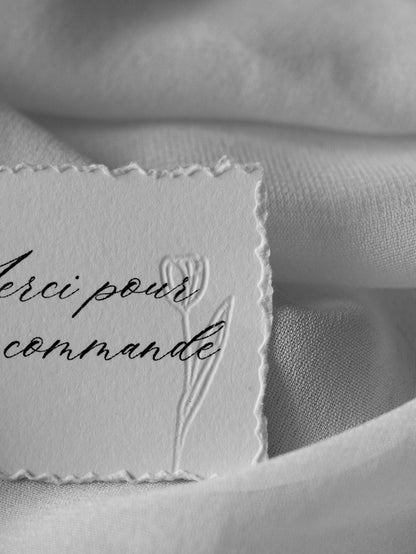 Merci pour
commande